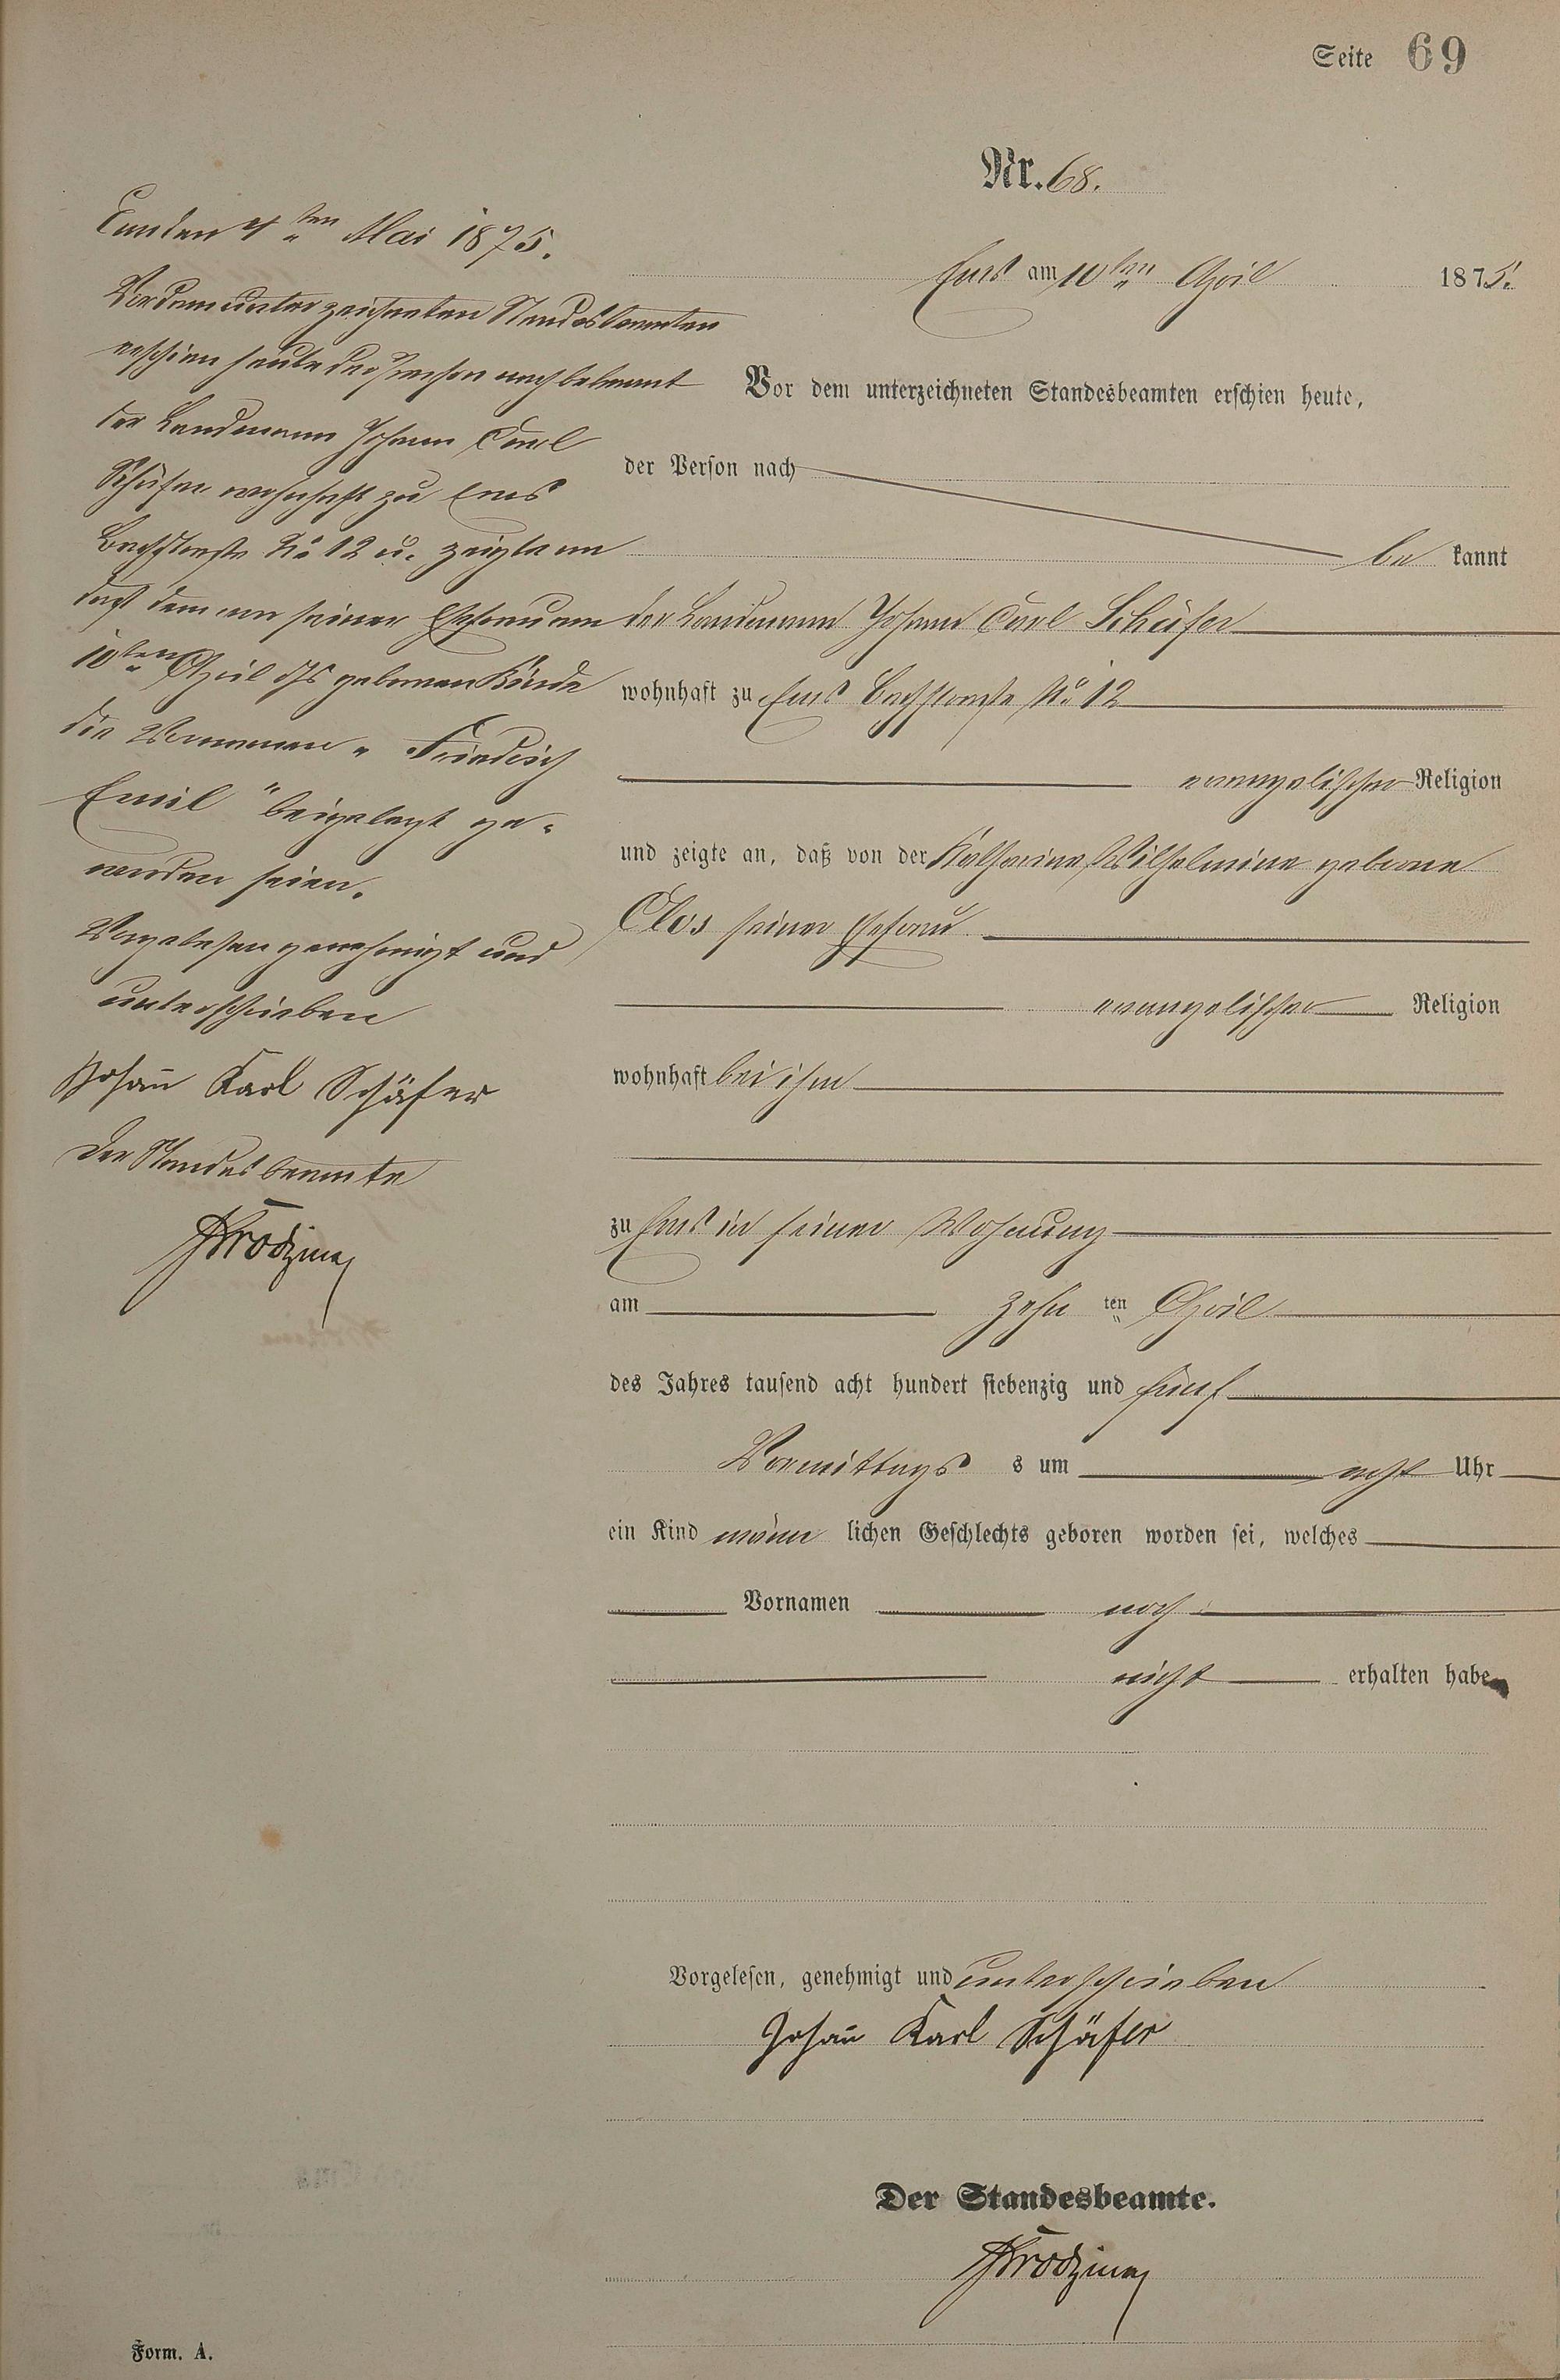 Seite 69
Nr. 68.
Ems am 10ten April 1875.
Vor dem unterzeichneten Standesbeamten erschien heute,
der Person nach
be kannt
der Landmann Johann Carl Schäfer
wohnhaft zu Ems Bachstraße No 12
evangelischer Religion
und zeigte an, daß von der Katharine Wilhelmine geborne
Clos seiner Ehefrau
evangelischer Religion
wohnhaft bei ihm
zu Ems in seiner Wohnung
am zehn ten April
des Jahres tausend acht hundert siebenzig und fünf
Vormittags s um acht Uhr
ein Kind männ lichen Geschlechts geboren worden sei, welches
Vornamen noch
nicht erhalten habe
Vorgelesen, genehmigt und unterschrieben
Johan̄ Karl Schäfer
Der Standesbeamte.
Form. A.
Ems den 4ten Mai 1875.
Vor dem unterzeichneten Standesbeamten
erschien heute der Person nach bekannt
der Landmann Johann Carl
Schäfer wohnhaft zu Ems
Bachstraße No 12 u. zeigte an
daß dem von seiner Ehefrau am
10ten April dJs gebornen Kinde
die Vornamen „Friedrich
Emil" beigelegt ge-
worden seien.
Vorgelesen genehmigt und
unterschrieben
Johan̄ Karl Schäfer
Der Standesbeamte